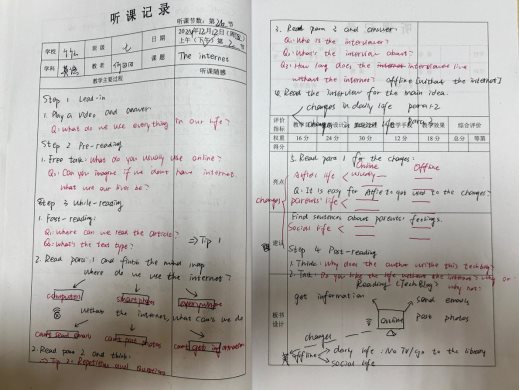 听课记录
听课节数：第 节
学校
班级
七
日期
2024年12月12日(周四)
上午(下午)第2节
学科
英语
教者
课题
The internet
教学主要过程
听课随感
Step 1 Lead-in
1. Play a video and answer:
Q: What do we use everything in our life?
Step 2 Pre-reading
1. Free task: What do you usually use online?
Q: Can you imagine if we don't have internet.
what we our live be?
Step 3 While-reading
1. Fast-reading:
Q: Where can we read the article?
Q: What's the text type?
⇒ Tip 1
2. Read para 1 and finish the mind map
where do we use the internet?
computer
smartphone
without the internet, what can't we do
can't send emails
can't post photos
can't get information
2. Read para 2 and think:
⇒ Tip 2: Repetition and questions
3. Read para 3 and answer:
Q1: Who is the interviewer?
Q2: What's the interview about?
Q3: How long does the internet interviewees live
without the internet? offline [without the internet]
4. Read the interview for the main idea.
changes in daily life para 1-2
para 3
评价指标
教学
设计
教学手段
教学效果
综合评价
权重
16分
24分
30分
12分
18分
总分
等第
得分
亮点
5. Read para 1 for the changes:
Online
Offline
life
usually
changes
Q: It is easy for to get used to the changes?
parents' life
Find sentences about parents' feelings.
Social life
建议
Step 4 Post-reading
1. Think: Why does the author write this tech blog?
2. Task: Do you like the life without the internet? Why or
why not?
板书设计
Reading (Tech Blog)
get information
send emails
Online
post photos
changes
offline
daily life: No TV/go to the library
social life